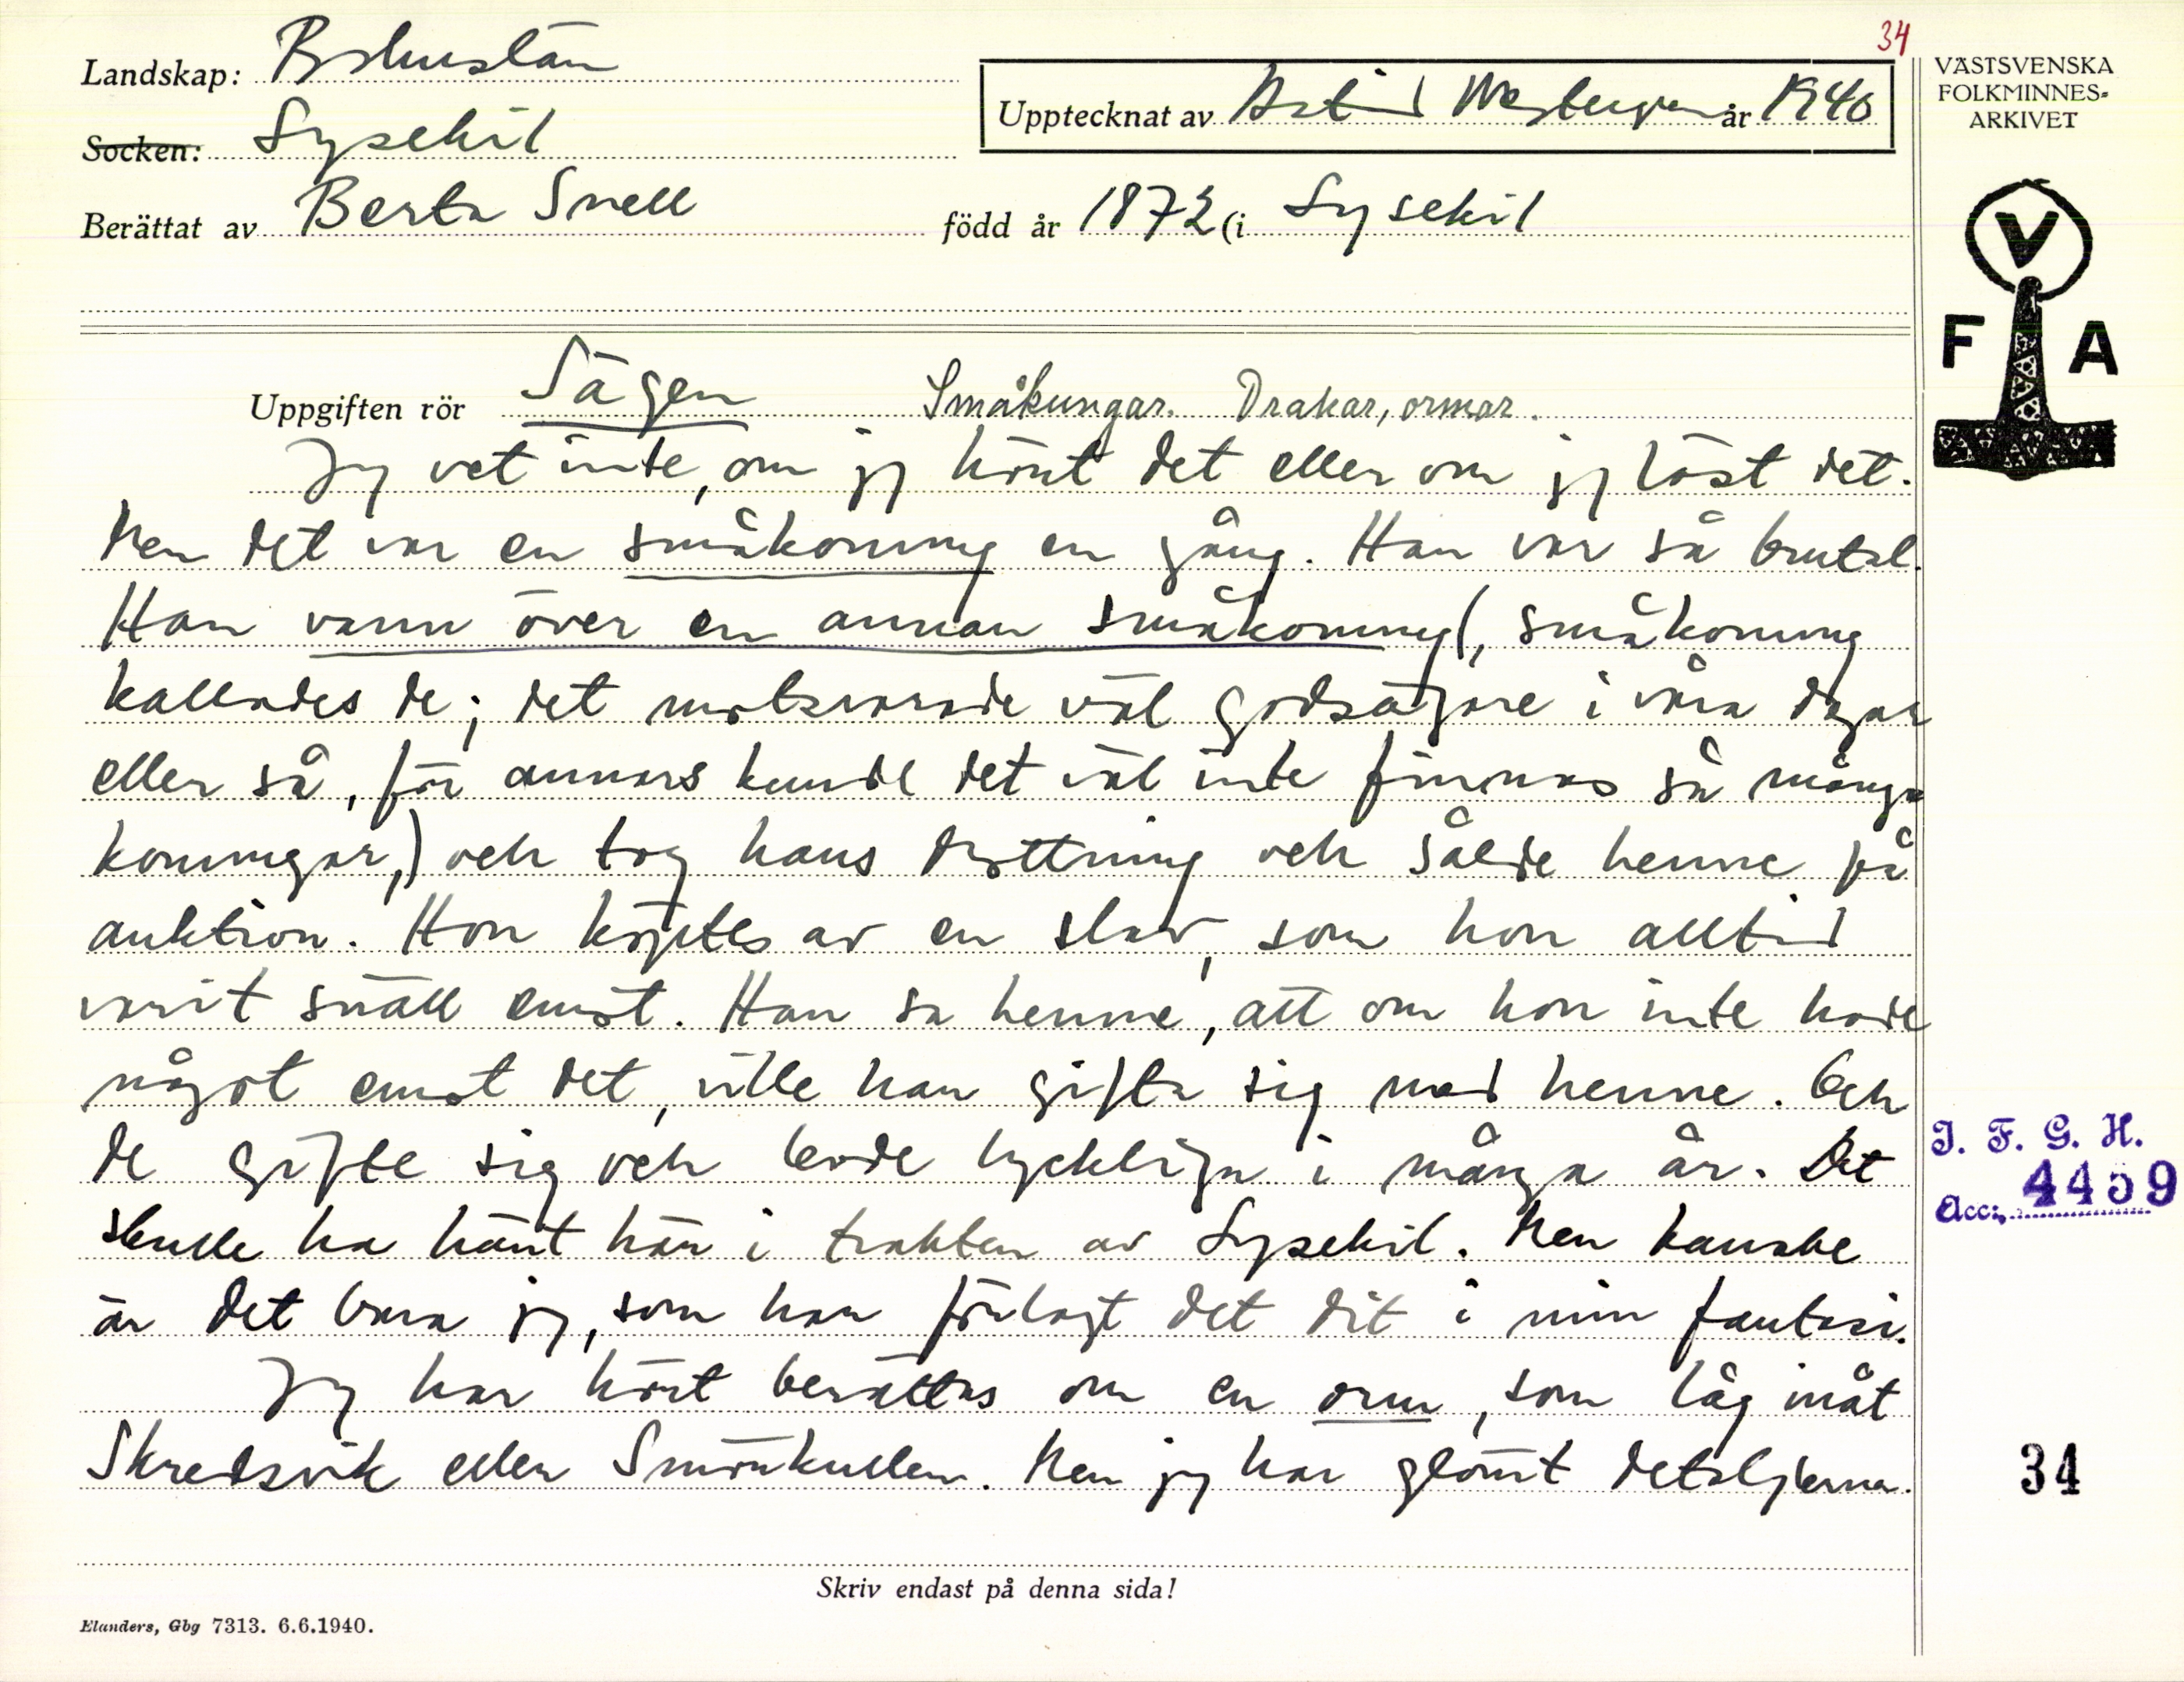 34
Landskap: Bohuslän
Socken: Lysekil
Upptecknat av Astrid år 1940
Berättat av Berta Snell född år 1872 (i Lysekil
VÄSTSVENSKA
FOLKMINNES-
ARKIVET
V
F A
Uppgiften rör Sägen Småkungar. Drakar, ormar.
Jag vet inte, om jag hört det eller om jag läst det.
Men det var en småkonung en gång. Han var så brutal.
Han vann över en annan småkonung (, småkonung
kallades de; det motsvarade väl godsägare i våra dagar
eller så, för annars kunde det väl inte finnas så många
konungar,) och tog hans drottning och sålde henne på
auktion. Hon köptes av en slav, som hon alltid
varit snäll emot. Han sa henne, att om hon inte hade
något emot det, ville han gifta sig med henne. Och
de gifte sig och levde lyckliga i många år. Det
skulle ha hänt här i trakten av Lysekil. Men kanske
är det bara jag, som har förlagt det dit i min fantasi.
Jag har hört berättas om en orm, som låg inåt
Skredsvik eller Smörkullen. Men jag har glömt detaljerna.
I. F. G. H.
Acc: 4459
34
Skriv endast på denna sida!
Elanders, Gbg 7313. 6.6.1940.